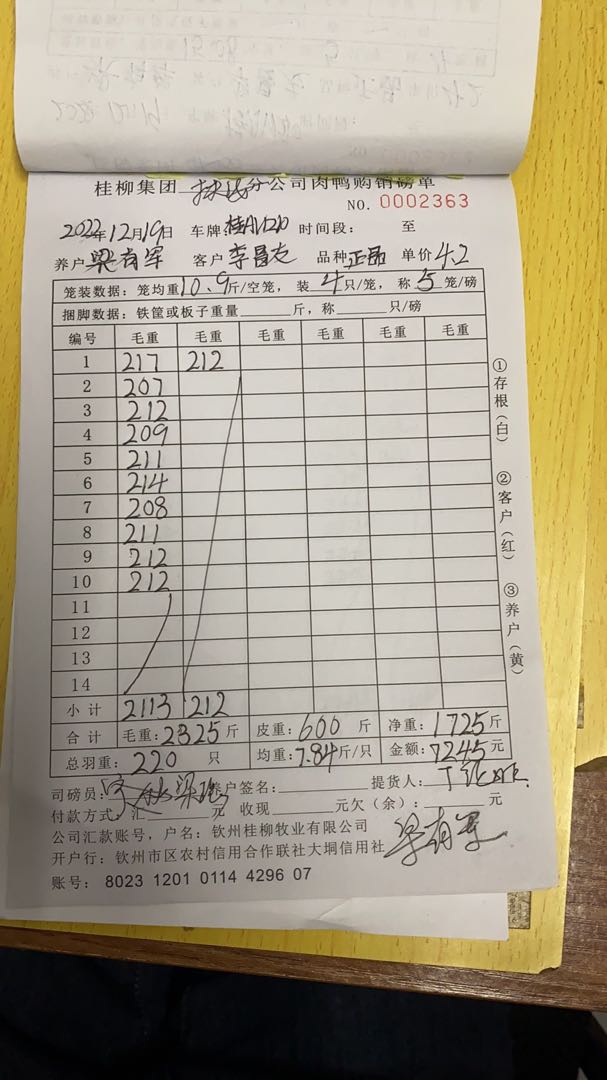 桂柳集团 分公司肉鸭购销磅单
NO. 0002363
2022年12月19日 车牌: 时间段: 至
养户 梁有军 客户 李昌友 品种 正品 单价 4.2
笼装数据: 笼均重10.9斤/空笼, 装 4 只/笼, 称 5 笼/磅
捆脚数据: 铁筐或板子重量 斤, 称 只/磅
编号 毛重 毛重 毛重 毛重 毛重 毛重
1 217 212
2 207
3 212
4 209
5 211
6 214
7 208
8 211
9 212
10 212
11
12
13
14
小计 2113 212
合计 毛重: 2325 斤 皮重: 600 斤 净重: 1725 斤
总羽重: 220 只 均重: 7.84斤/只 金额: 7245 元
司磅员: 养户签名: 提货人:
付款方式: 汇 元 收现 元欠(余): 元
公司汇款账号, 户名: 钦州桂柳牧业有限公司
开户行: 钦州市区农村信用合作联社大垌信用社
梁有军
账号: 8023 1201 0114 4296 07
①存根(白)
②客户(红)
③养户(黄)